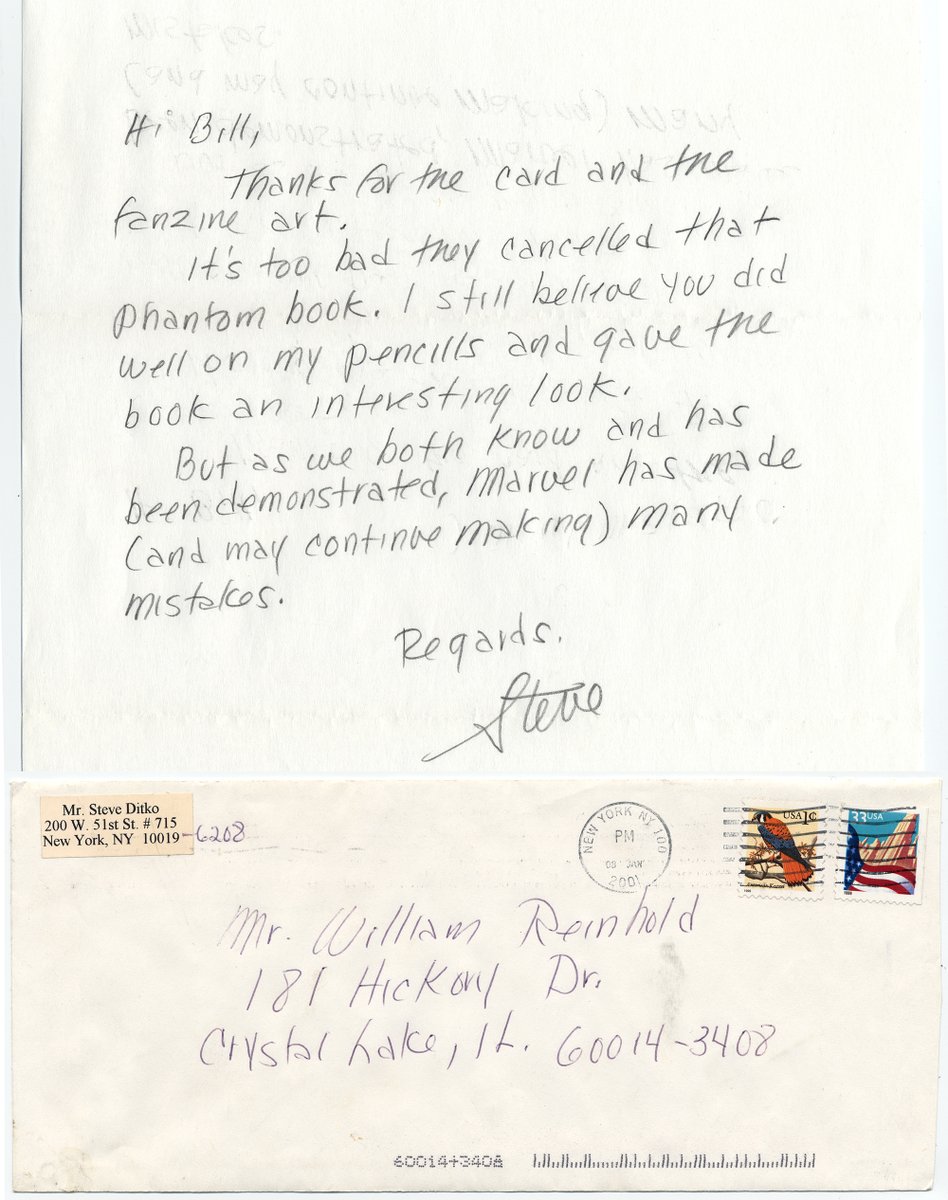 Hi Bill,
Thanks for the card and the
fanzine art.
It's too bad they cancelled that
Phantom book. I still believe you did
well on my pencills and gave the
book an interesting look.
But as we both know and has
been demonstrated, Marvel has made
(and may continue making) many
mistakes.
Regards.
Steve
Mr. Steve Ditko
200 W. 51st St. # 715
New York, NY 10019-6208
NEW YORK NY 100
PM
JAN
2001
USA 1¢
33 USA
Mr. William Reinhold
181 Hickory Dr.
Crystal Lake, IL. 60014-3408
60014+3408